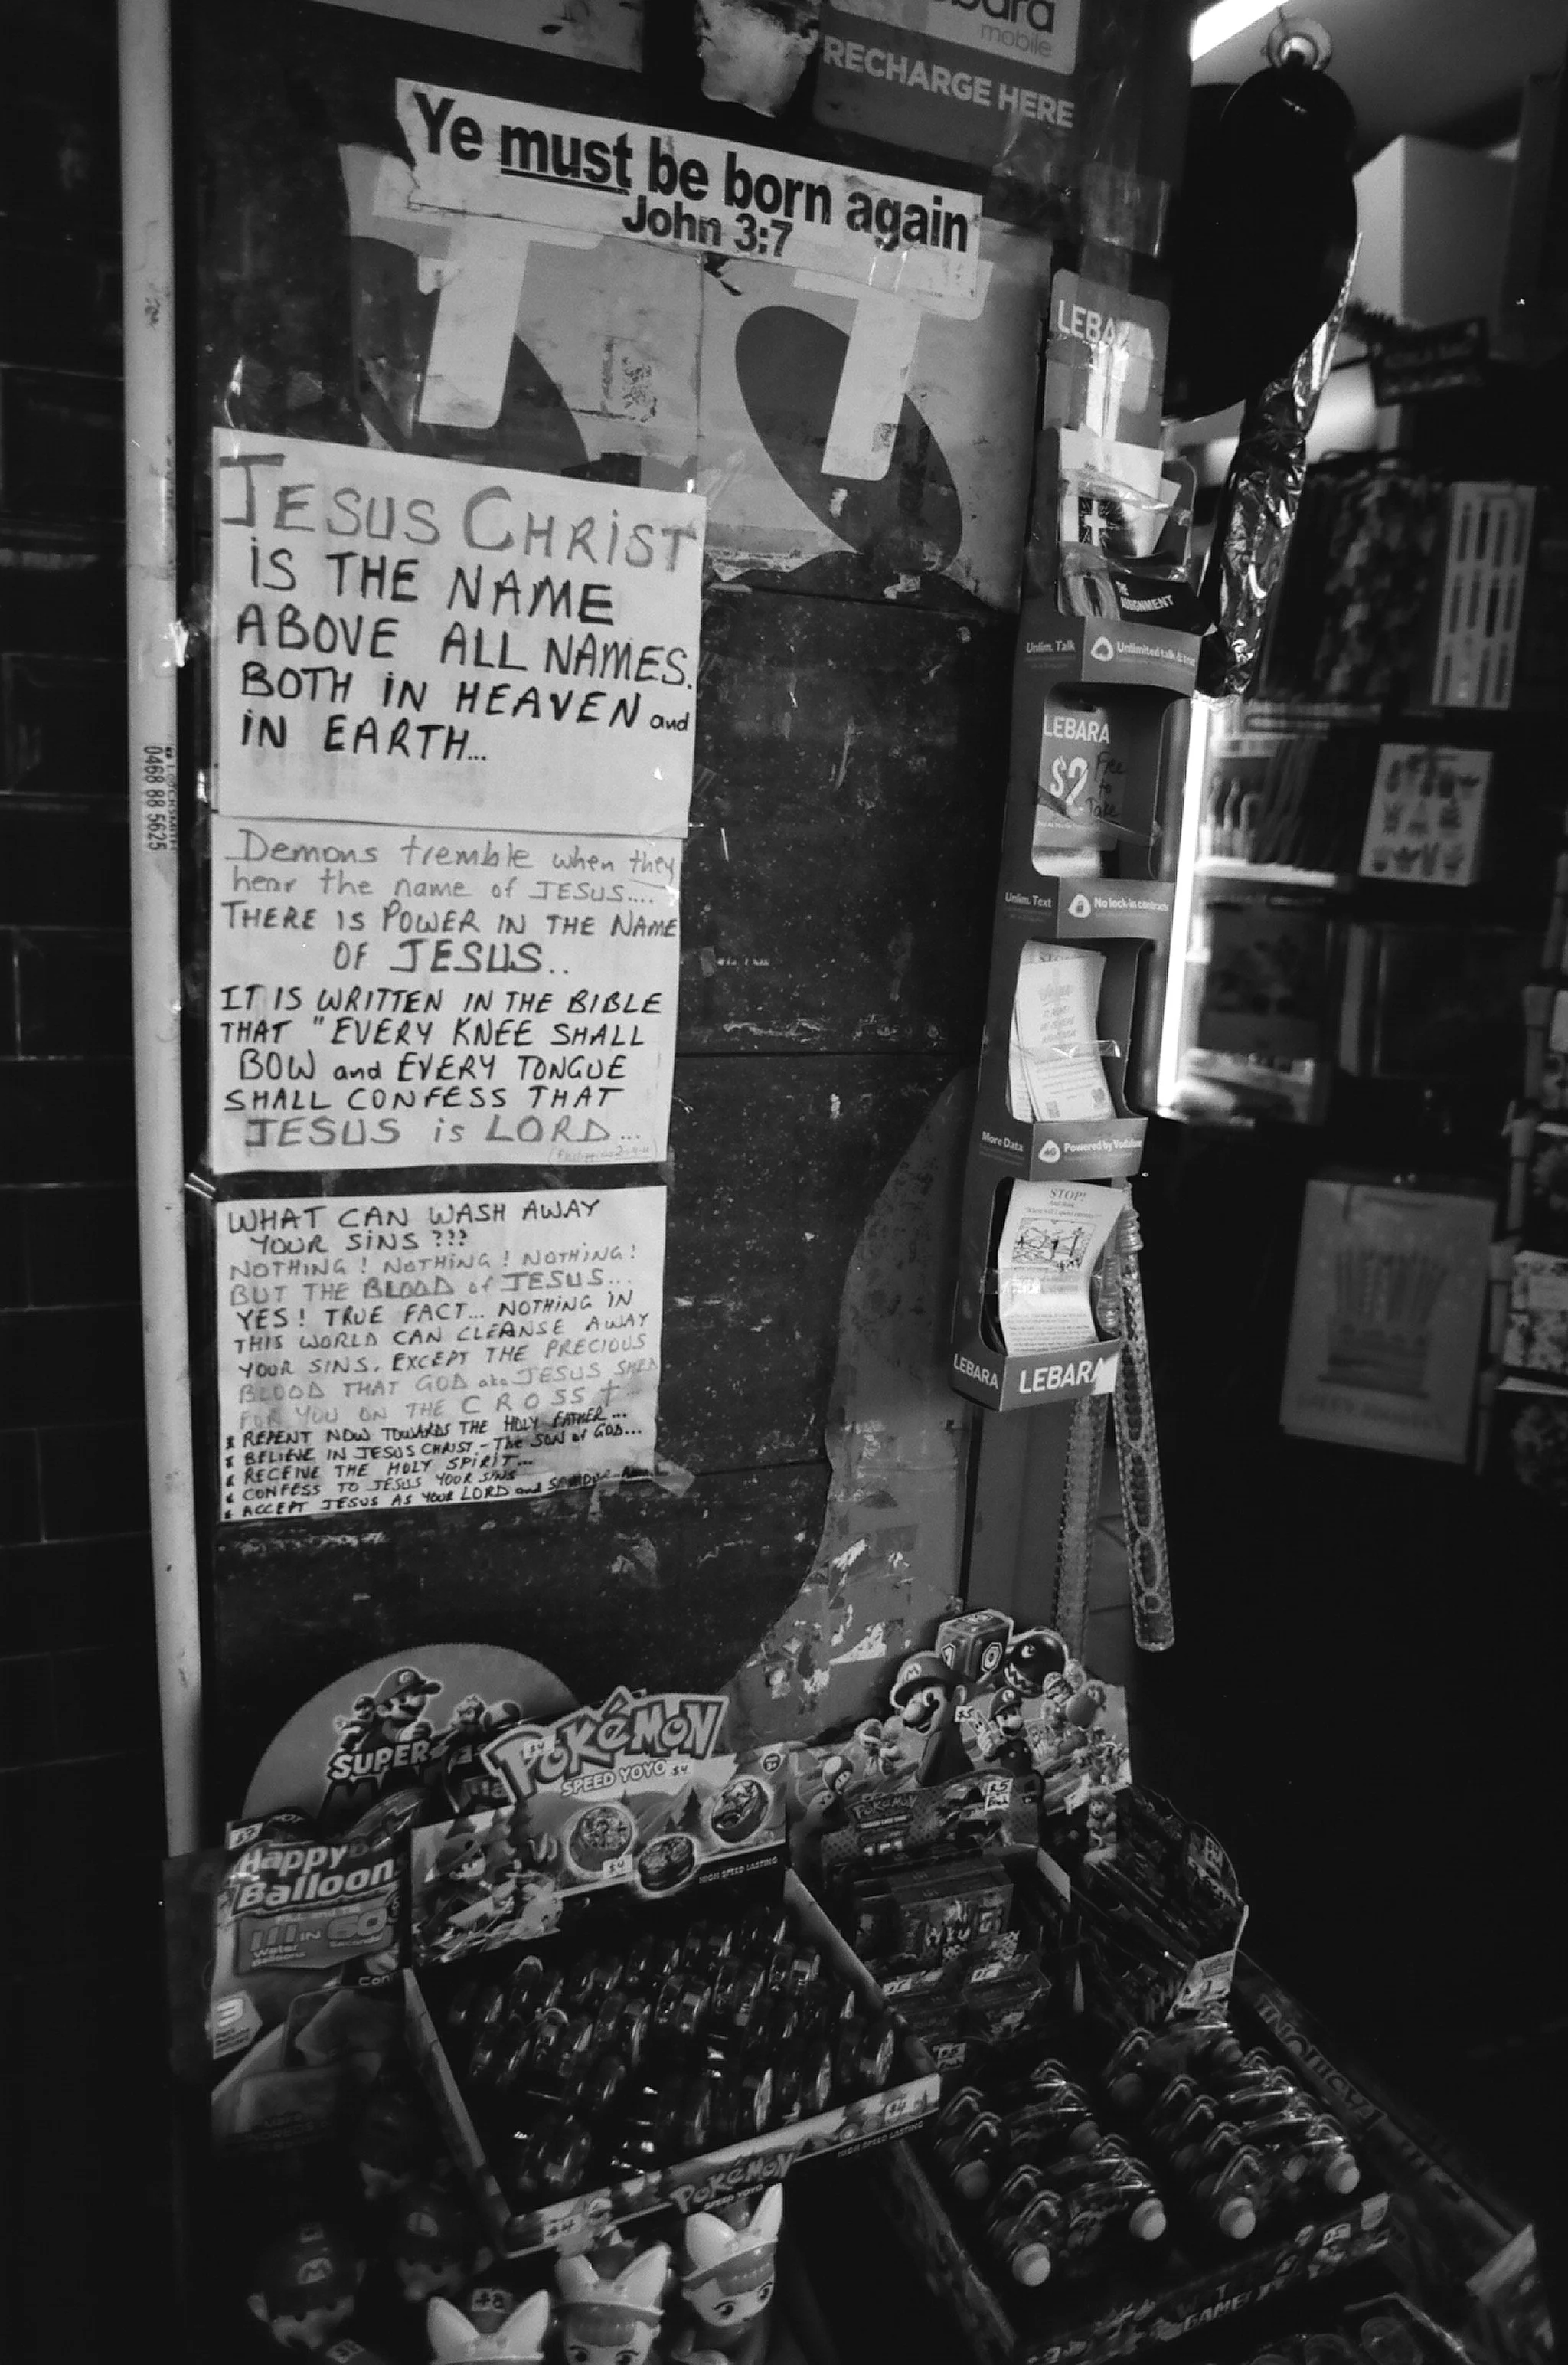 bara
mobile
RECHARGE HERE
Ye must be born again
John 3:7
LEBARA
JESUS CHRIST
IS THE NAME
ABOVE ALL NAMES.
BOTH IN HEAVEN and
IN EARTH...
THE
ASSIGNMENT
Unlim. Talk
Unlimited talk & text
LEBARA
$2
Free
to
Take
LOCKSMITH
0468 88 5625
Demons tremble when they
hear the name of JESUS....
THERE IS POWER IN THE NAME
OF JESUS..
IT IS WRITTEN IN THE BIBLE
THAT "EVERY KNEE SHALL
BOW and EVERY TONGUE
SHALL CONFESS THAT
JESUS is LORD...
Unlim. Text
No lock-in contracts
More Data
4G
Powered by Vodafone
STOP!
LEBARA
LEBARA
WHAT CAN WASH AWAY
YOUR SINS ???
NOTHING! NOTHING! NOTHING!
BUT THE BLOOD of JESUS...
YES! TRUE FACT... NOTHING IN
THIS WORLD CAN CLEANSE AWAY
YOUR SINS, EXCEPT THE PRECIOUS
BLOOD THAT GOD aka JESUS SHED
FOR YOU ON THE CROSS
REPENT NOW TOWARDS THE HOLY FATHER...
BELIEVE IN JESUS CHRIST - The SON of GOD...
RECEIVE THE HOLY SPIRIT...
CONFESS TO JESUS YOUR SINS
ACCEPT JESUS AS YOUR LORD and
SUPER
POKéMON
SPEED YOYO
$4
$4
HIGH SPEED LASTING
POKéMON
$5
Each
Happy
Balloon
111 IN 60
Water
Balloons
Seconds
3
$4
HIGH SPEED LASTING
POKéMON
SPEED YOYO
$4
M
FASHION
GAME